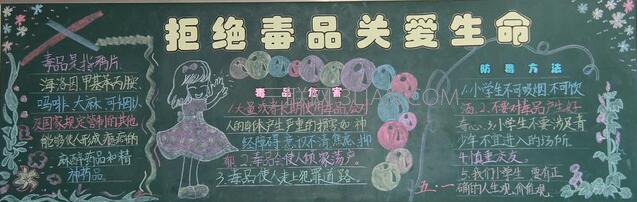 拒绝毒品关爱生命
毒品是指鸦片、
海洛因、甲基苯丙胺、
吗啡、大麻、可卡因以
及国家规定管制的其他
能够使人形成瘾癖的
麻醉药品和精
神药品
毒品危害
1.大量或者长期使用毒品,会对
人的身体产生严重的损害如神
经障碍、意识不清、焦虑、抑
郁 2.毒品会使人倾家荡产
3.毒品使人走上犯罪道路
防毒方法
1.小学生不可吸烟不可饮
酒 2.不要对毒品产生好
奇心 3.小学生不要涉足青
少年不宜进入的场所
4.慎重交友
5.我们小学生要有正
确的人生观、价值观
五.一